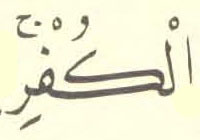 الْكُفِرِ